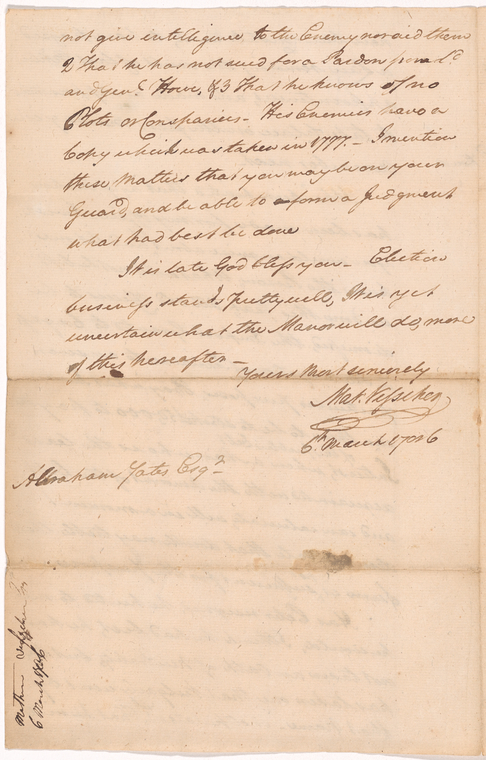 not give intelligence to the Enemy nor aid them
2 That he has not sued for a Pardon from Ld
and Genl. Howe, & 3 That he knows of no
Plots or Conspiracies — His Enemies have a
Copy which was taken in 1777. — I mention
these Matters that you may be on your
Guard, and be able to form a Judgment
what had best be done
It is late God bless you — Election
business stands pretty well, It is yet
uncertain what the Manor will do, more
of this hereafter —
Yours Most sincerely
Mat. Visscher
6th March 1786
Abraham Yates Esqr
Mathew Visscher
6 March 1786